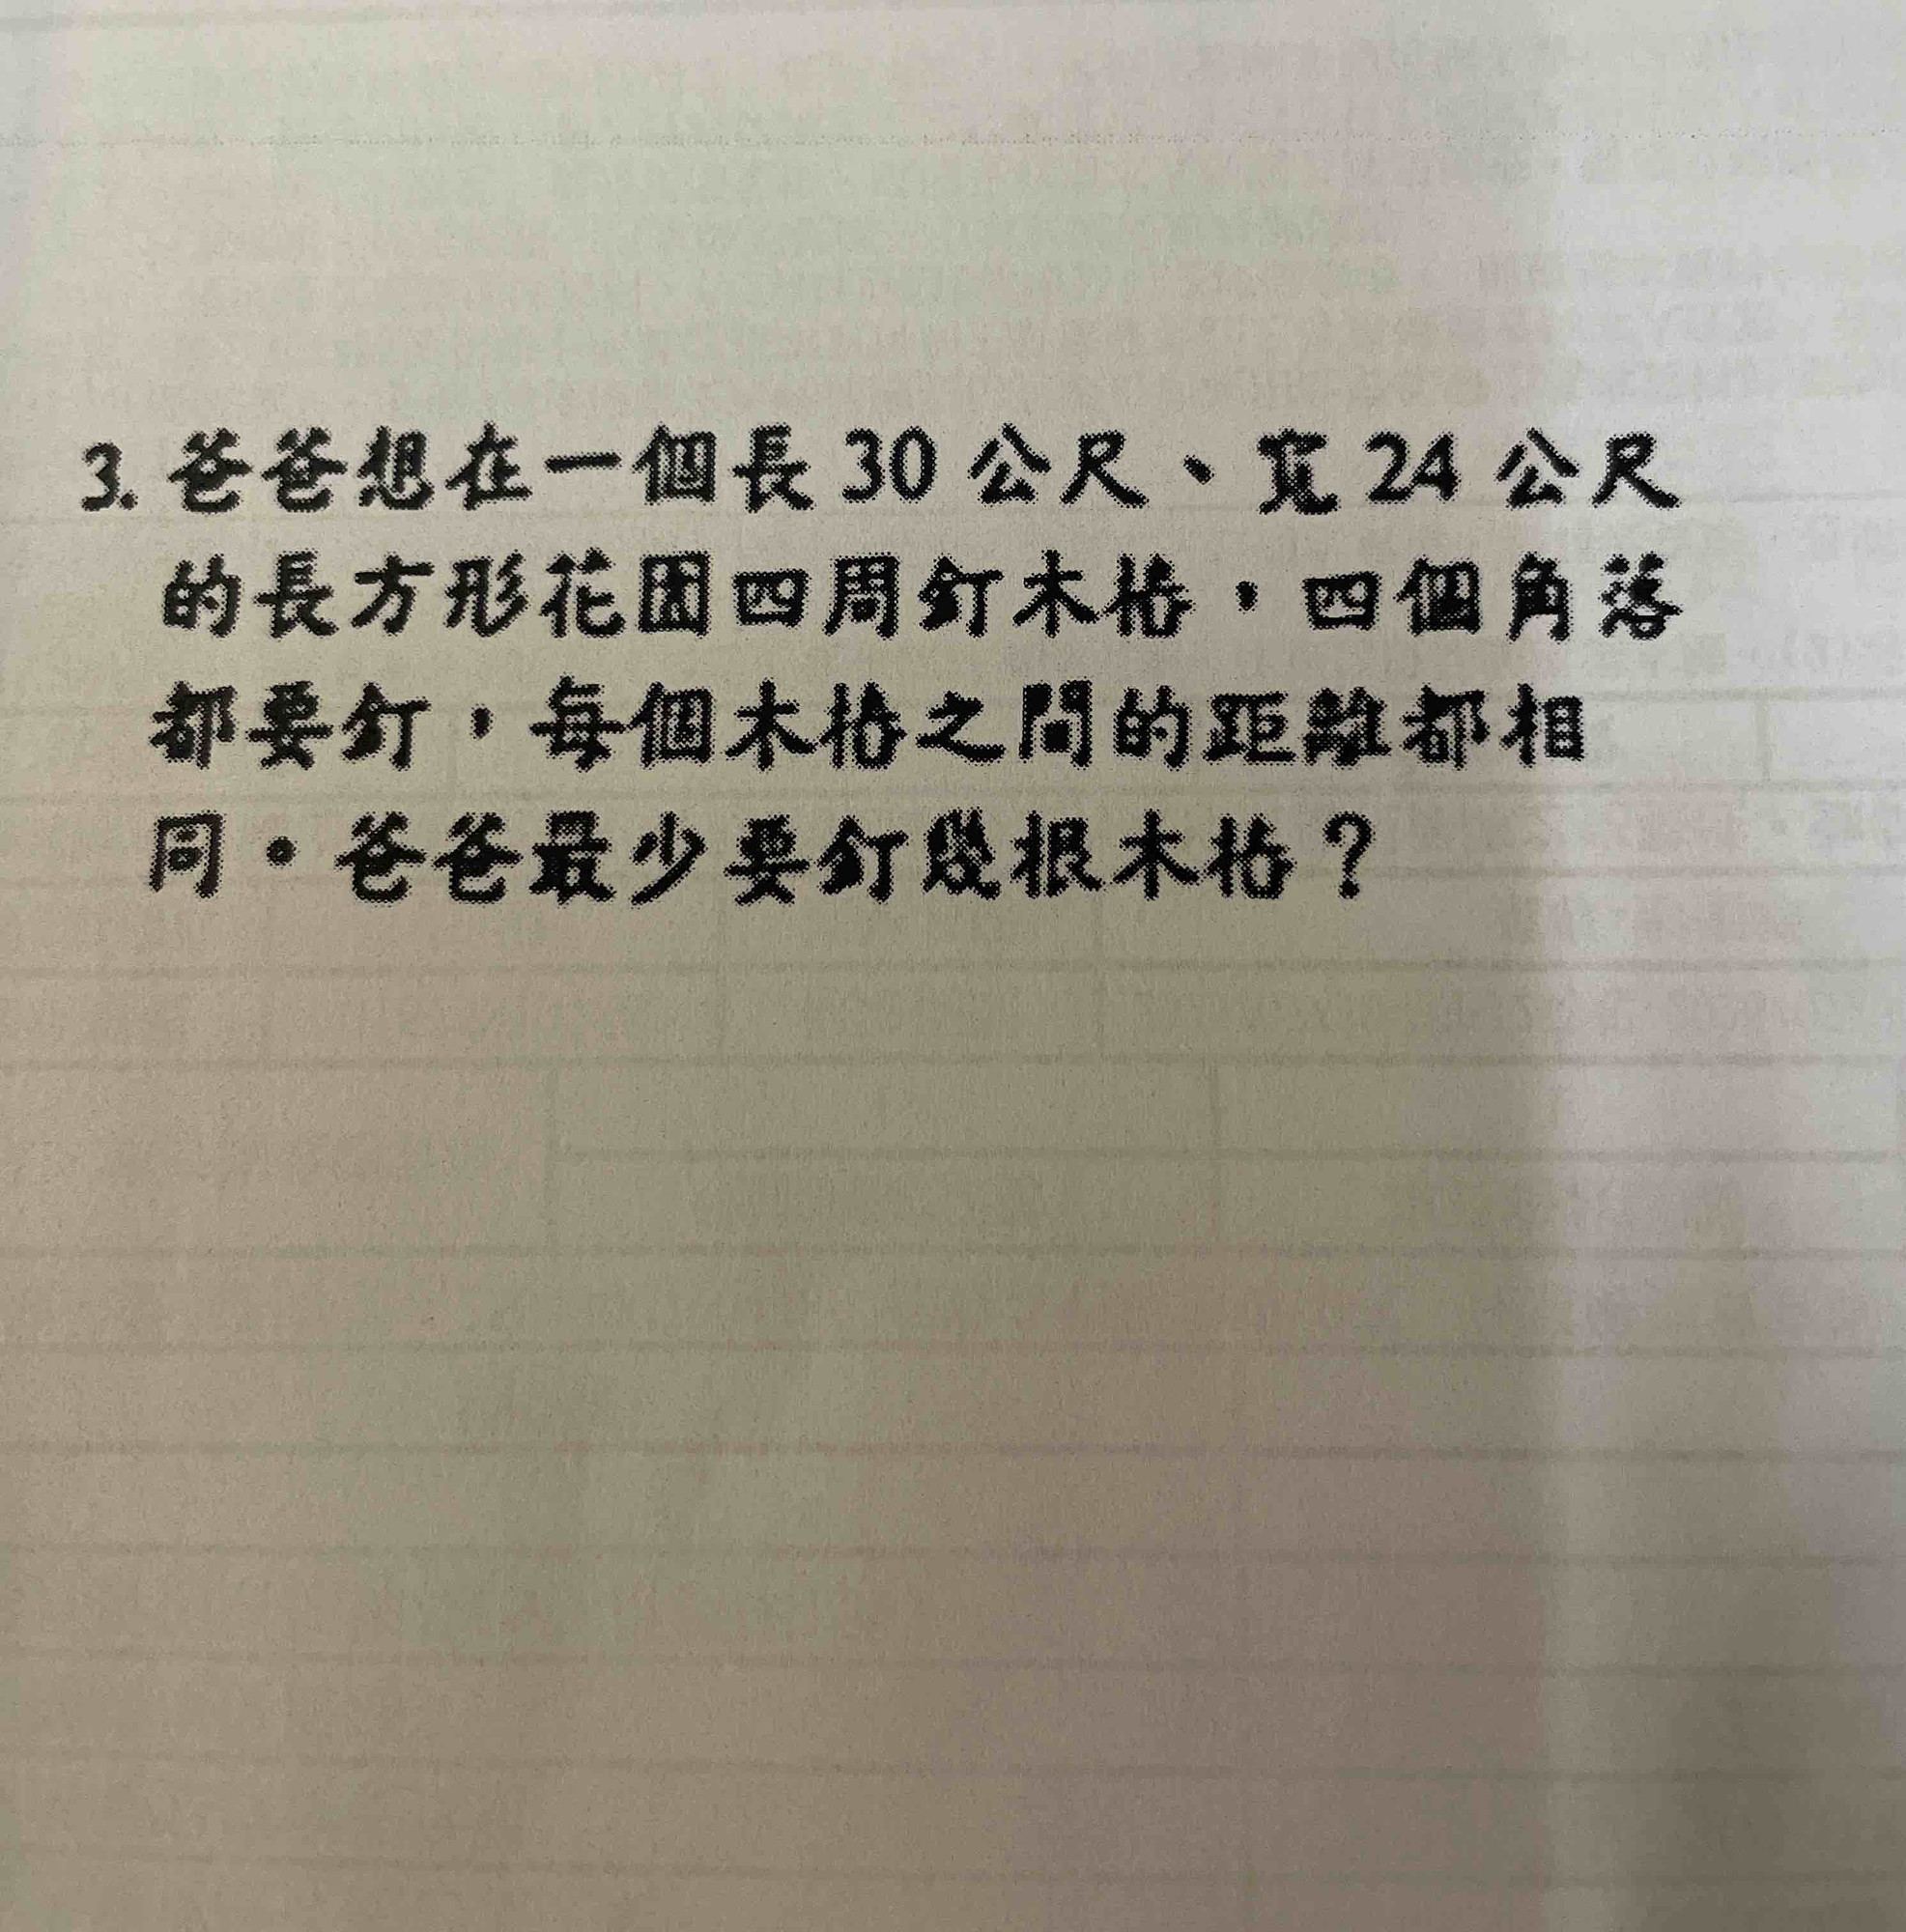 3. 爸爸想在一個長 30 公尺、寬 24 公尺
的長方形花園四周釘木樁，四個角落
都要釘，每個木樁之間的距離都相
同。爸爸最少要釘幾根木樁？